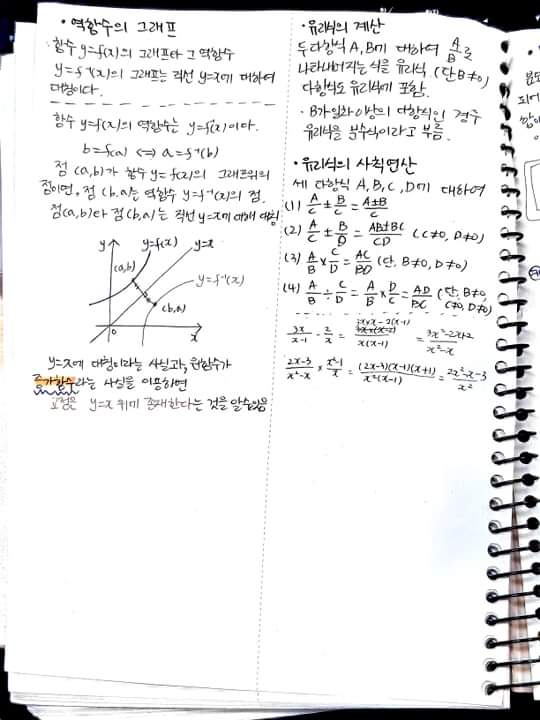 • 역함수의 그래프
함수 y=f(x)의 그래프와 그 역함수
y=f⁻¹(x)의 그래프는 직선 y=x에 대하여
대칭이다.
함수 y=f(x)의 역함수는 y=f(x)이다.
b=f(a) <=> a=f⁻¹(b)
점 (a,b)가 함수 y=f(x)의 그래프위의
점이면, 점 (b,a)는 역함수 y=f⁻¹(x)의 점.
점(a,b)와 점(b,a)는 직선 y=x에 대해 대칭
y
y=f(x)
y=x
(a,b)
y=f⁻¹(x)
(b,a)
0
x
y=x에 대칭이라는 사실과, 원함수가
증가함수라는 사실을 이용하면
교점은 y=x 위에 존재한다는 것을 알수있음
• 유리식의 계산
두 다항식 A, B에 대하여 A/B로
나타내어지는 식을 유리식. (단 B≠0)
다항식도 유리식에 포함.
· B가 일차이상의 다항식인 경우
유리식을 분수식이라고 부름.
• 유리식의 사칙연산
세 다항식 A, B, C, D에 대하여
(1) A/C ± B/C = A±B/C
(2) A/C ± B/D = AD±BC/CD (C≠0, D≠0)
(3) A/B × C/D = AC/BD (단, B≠0, D≠0)
(4) A/B ÷ C/D = A/B × D/C = AD/BC (단, B≠0, C≠0, D≠0)
3x/x-1 - 2/x = 3x×x-2(x-1)/x(x-1) = 3x²-2x+2/x²-x
2x-3/x²-x × x²-1/x = (2x-3)(x-1)(x+1)/x²(x-1) = 2x²-x-3/x²